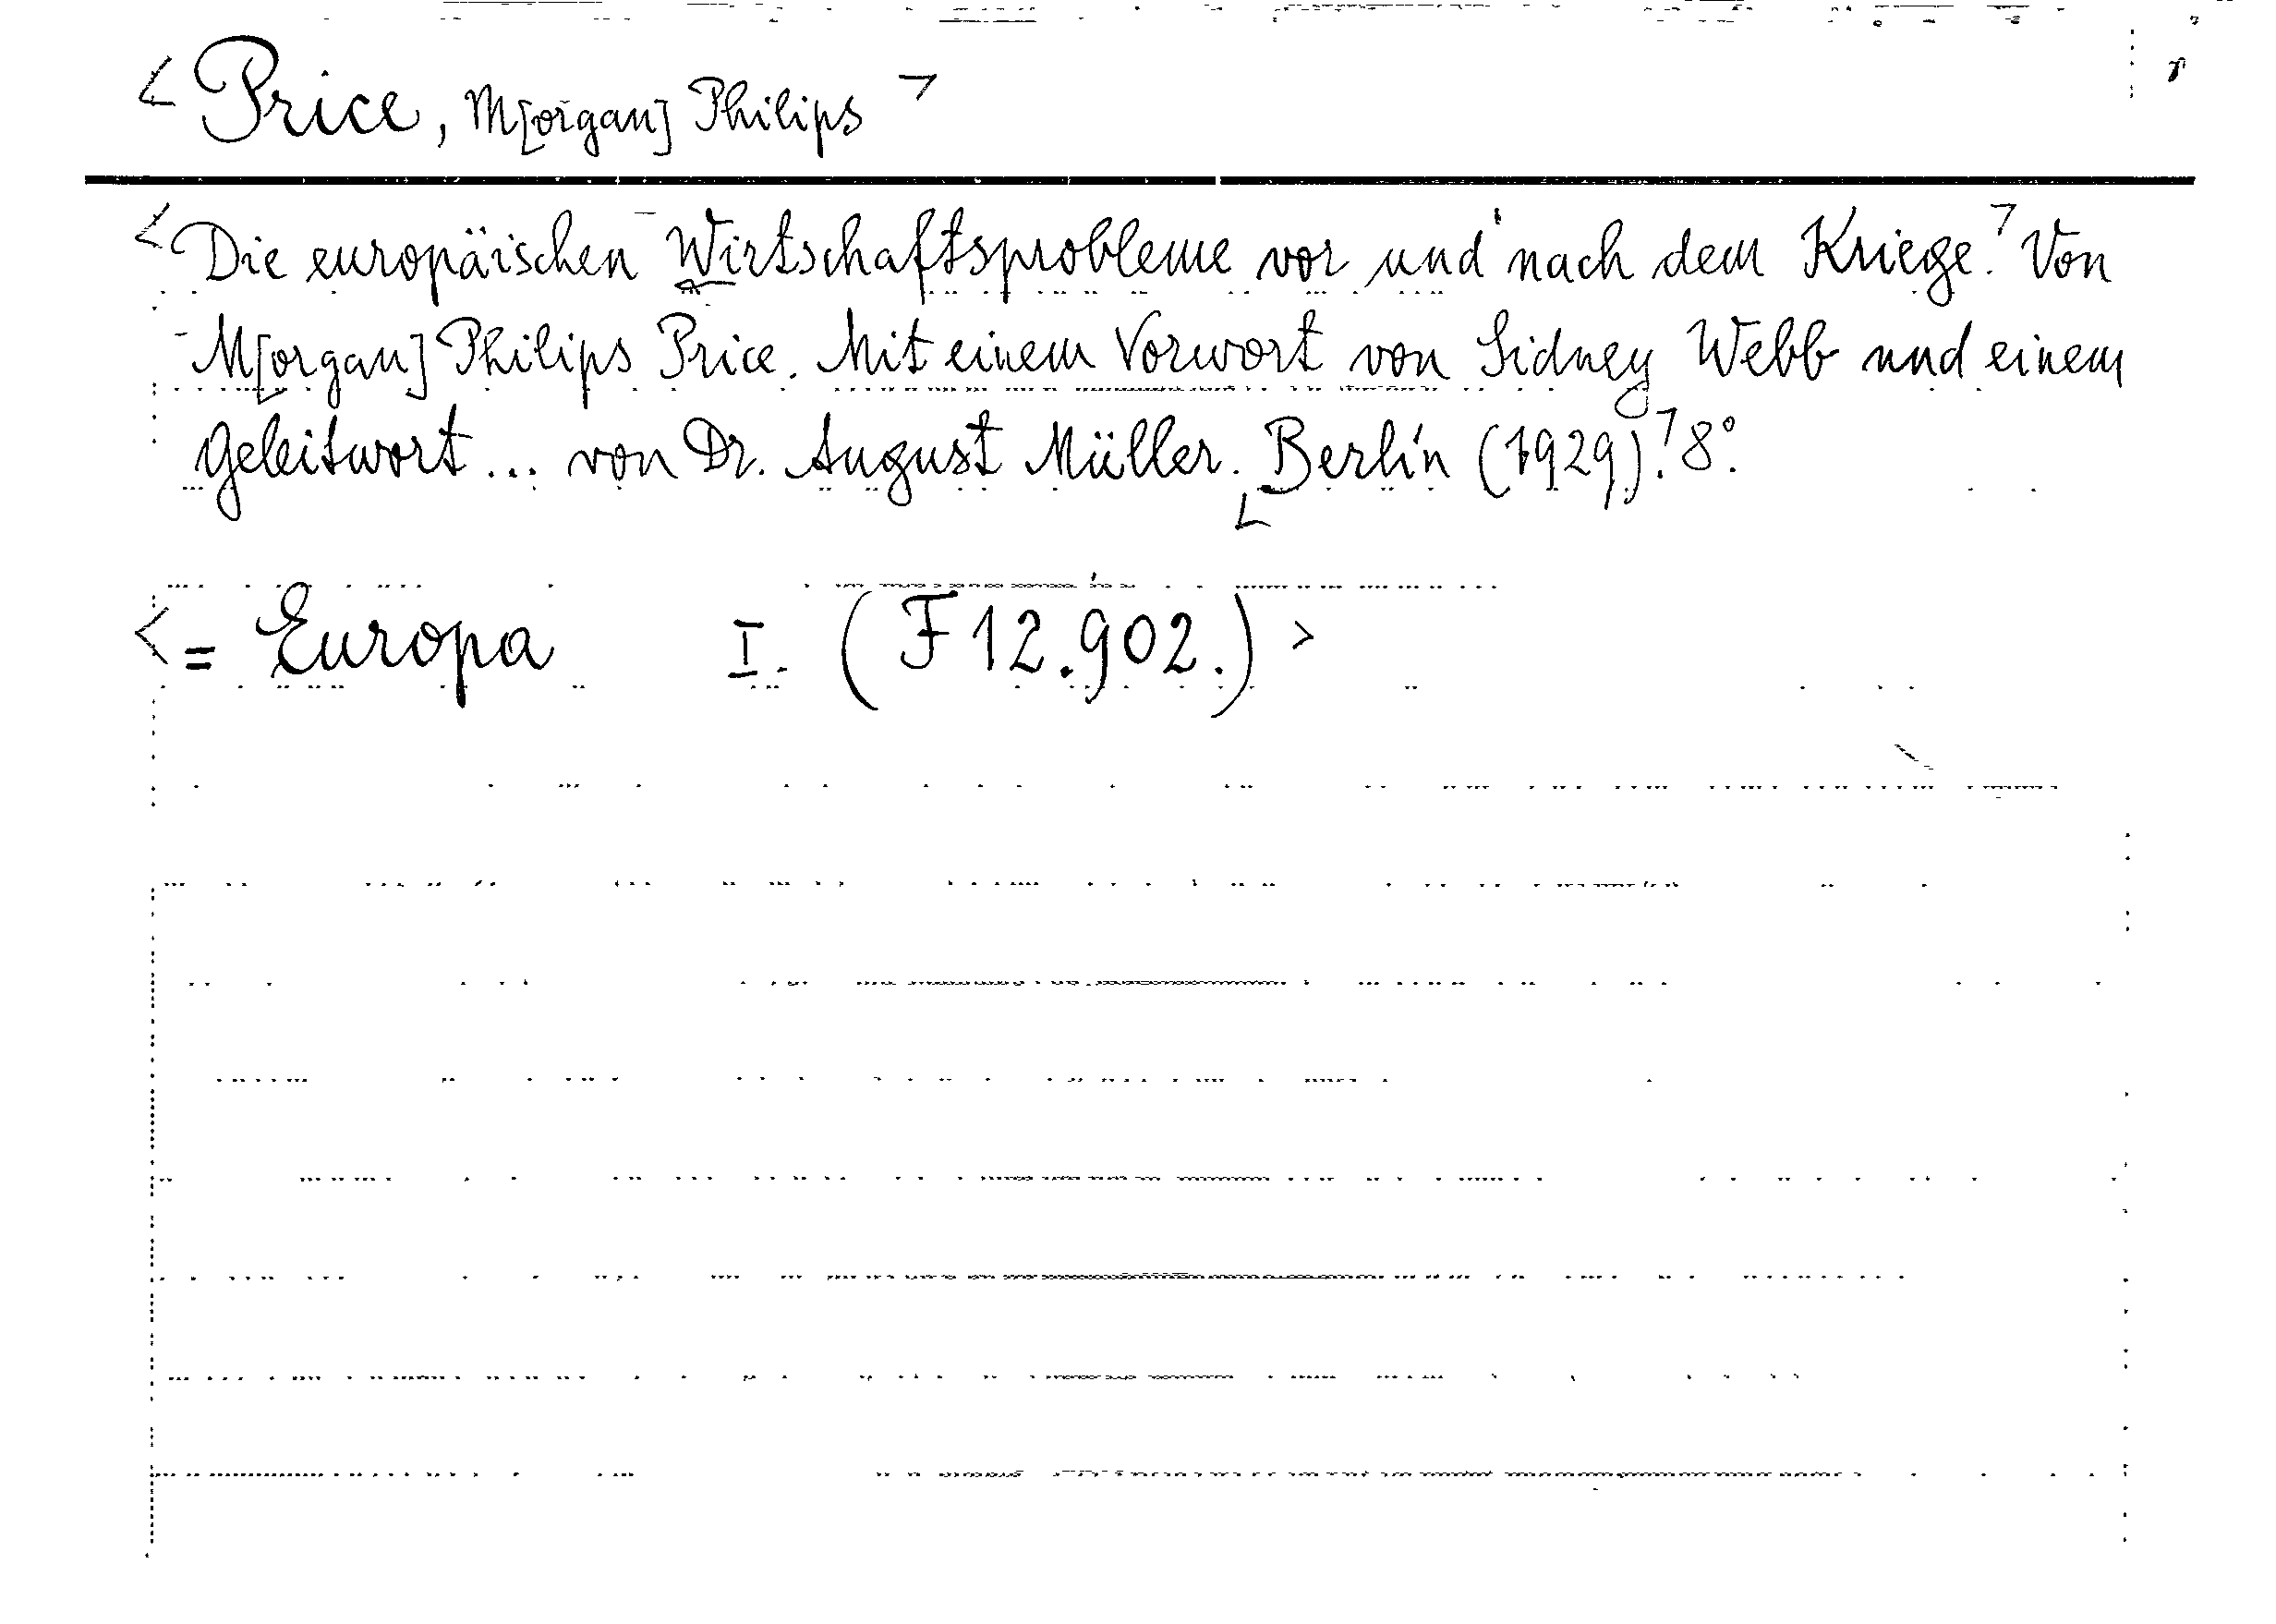 <Price, M[organ] Philips>
<Die europäischen Wirtschaftsprobleme vor und nach dem Kriege.> Von
M[organ] Philips Price. Mit einem Vorwort von Sidney Webb und einem
Geleitwort... von Dr. August Müller. <Berlin (1929).> 8°.
<= Europa I. (F12.902.)>